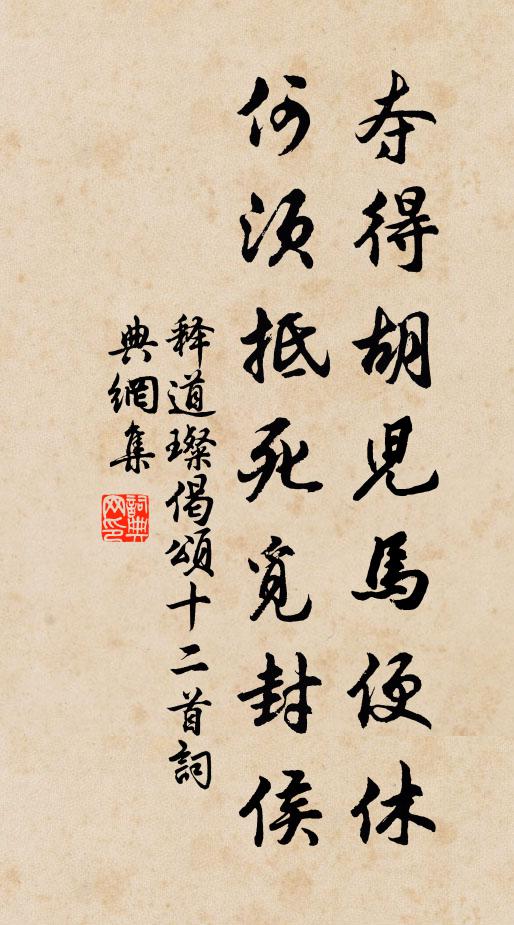 夺得胡児馬便休
何须抵死覓封侯
释道璨偈頌十二首詞
典網集
詞典
网印